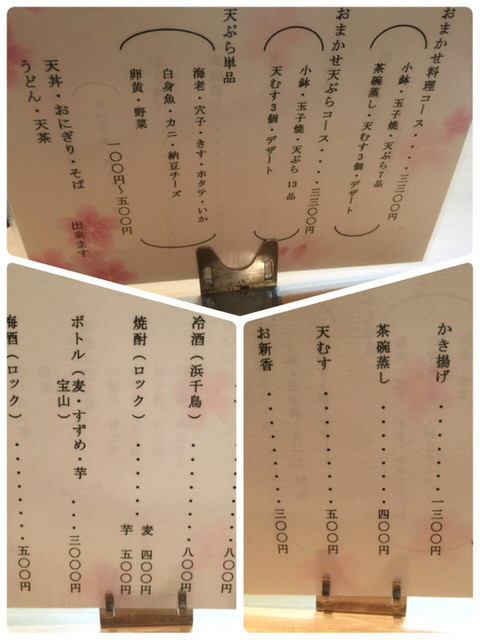 おまかせ料理コース・・・・・三三〇〇円
小鉢・玉子焼・天ぷら7品
茶碗蒸し・天むす3個・デザート
おまかせ天ぷらコース・・・・三三〇〇円
小鉢・玉子焼・天ぷら 13品
天むす3個・デザート
天ぷら単品
海老・穴子・きす・ホタテ・いか
白身魚・カニ・納豆チーズ
卵黄・野菜
一〇〇円〜五〇〇円
天丼・おにぎり・そば
うどん・天茶
出来ます
・・・・八〇〇円
冷酒(浜千鳥)・・・・・・・・八〇〇円
焼酎(ロック)・・・・・・麦 四〇〇円
芋 五〇〇円
ボトル(麦・すずめ・芋 宝山)・・・三〇〇〇円
梅酒(ロック)・・・・・・・・五〇〇円
かき揚げ・・・・・・・・一三〇〇円
茶碗蒸し・・・・・・・・・四〇〇円
天むす・・・・・・・・・・五〇〇円
お新香・・・・・・・・・・三〇〇円